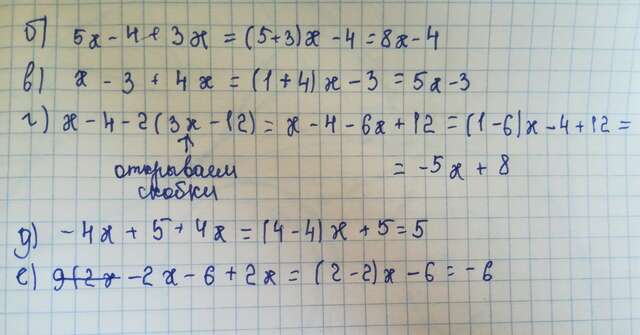 б) 5x - 4 + 3x = (5+3)x - 4 = 8x - 4
в) x - 3 + 4x = (1+4)x - 3 = 5x - 3
г) x - 4 - 2(3x - 12) = x - 4 - 6x + 12 = (1-6)x - 4 + 12 =
открываем
скобки
= -5x + 8
д) -4x + 5 + 4x = (4-4)x + 5 = 5
е) 9(2x -2x - 6 + 2x = (2-2)x - 6 = -6